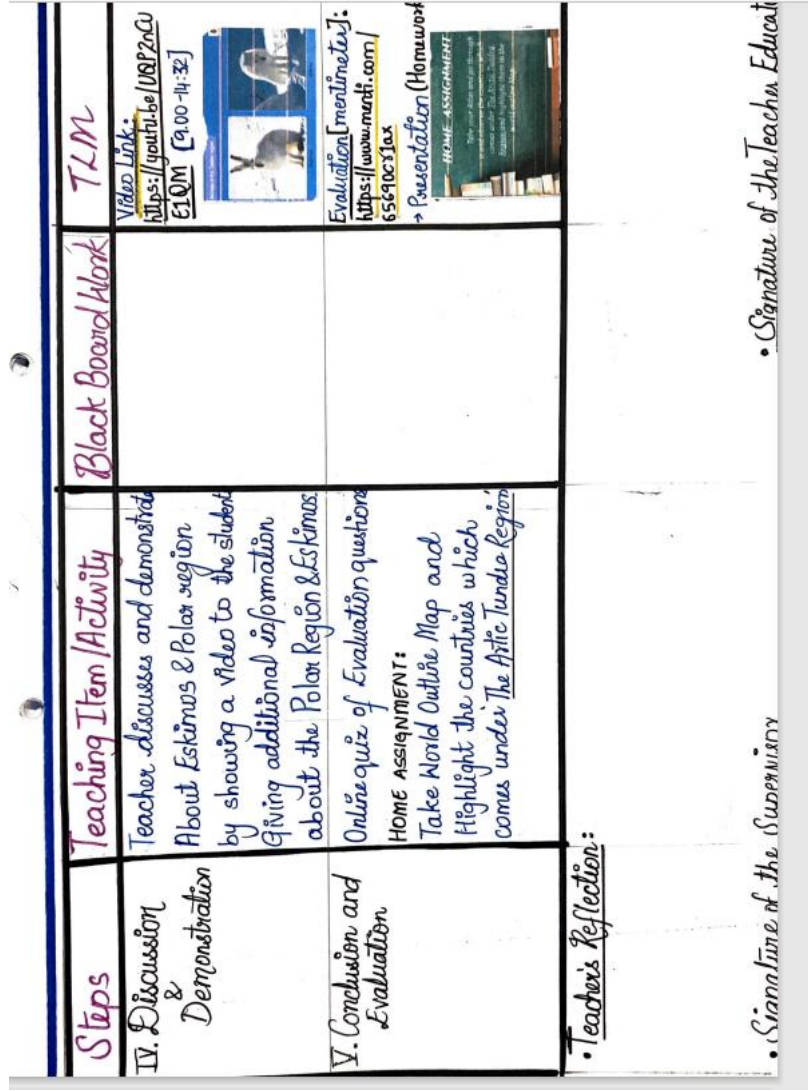 Steps
Teaching Item/Activity
Black Board Work
TLM
IV. Discussion
&
Demonstration
Teacher discusses and demonstrate
About Eskimos & Polar region
by showing a video to the student
Giving additional information
about the Polar Region & Eskimos.
Video Link:
https://youtu.be/
E1QM [9.00-14:32]
V. Conclusion and
Evaluation
Online quiz of Evaluation question
HOME ASSIGNMENT:
Take World Outline Map and
Highlight the countries which
comes under The Artic Tundra Region
Evaluation[mentimeter]:
https://www.menti.com/
→ Presentation (Homework
HOME ASSIGNMENT
Take your Atlas and go through
• Teacher's Reflection:
• Signature of the Supervisor
• Signature of the Teacher Educat